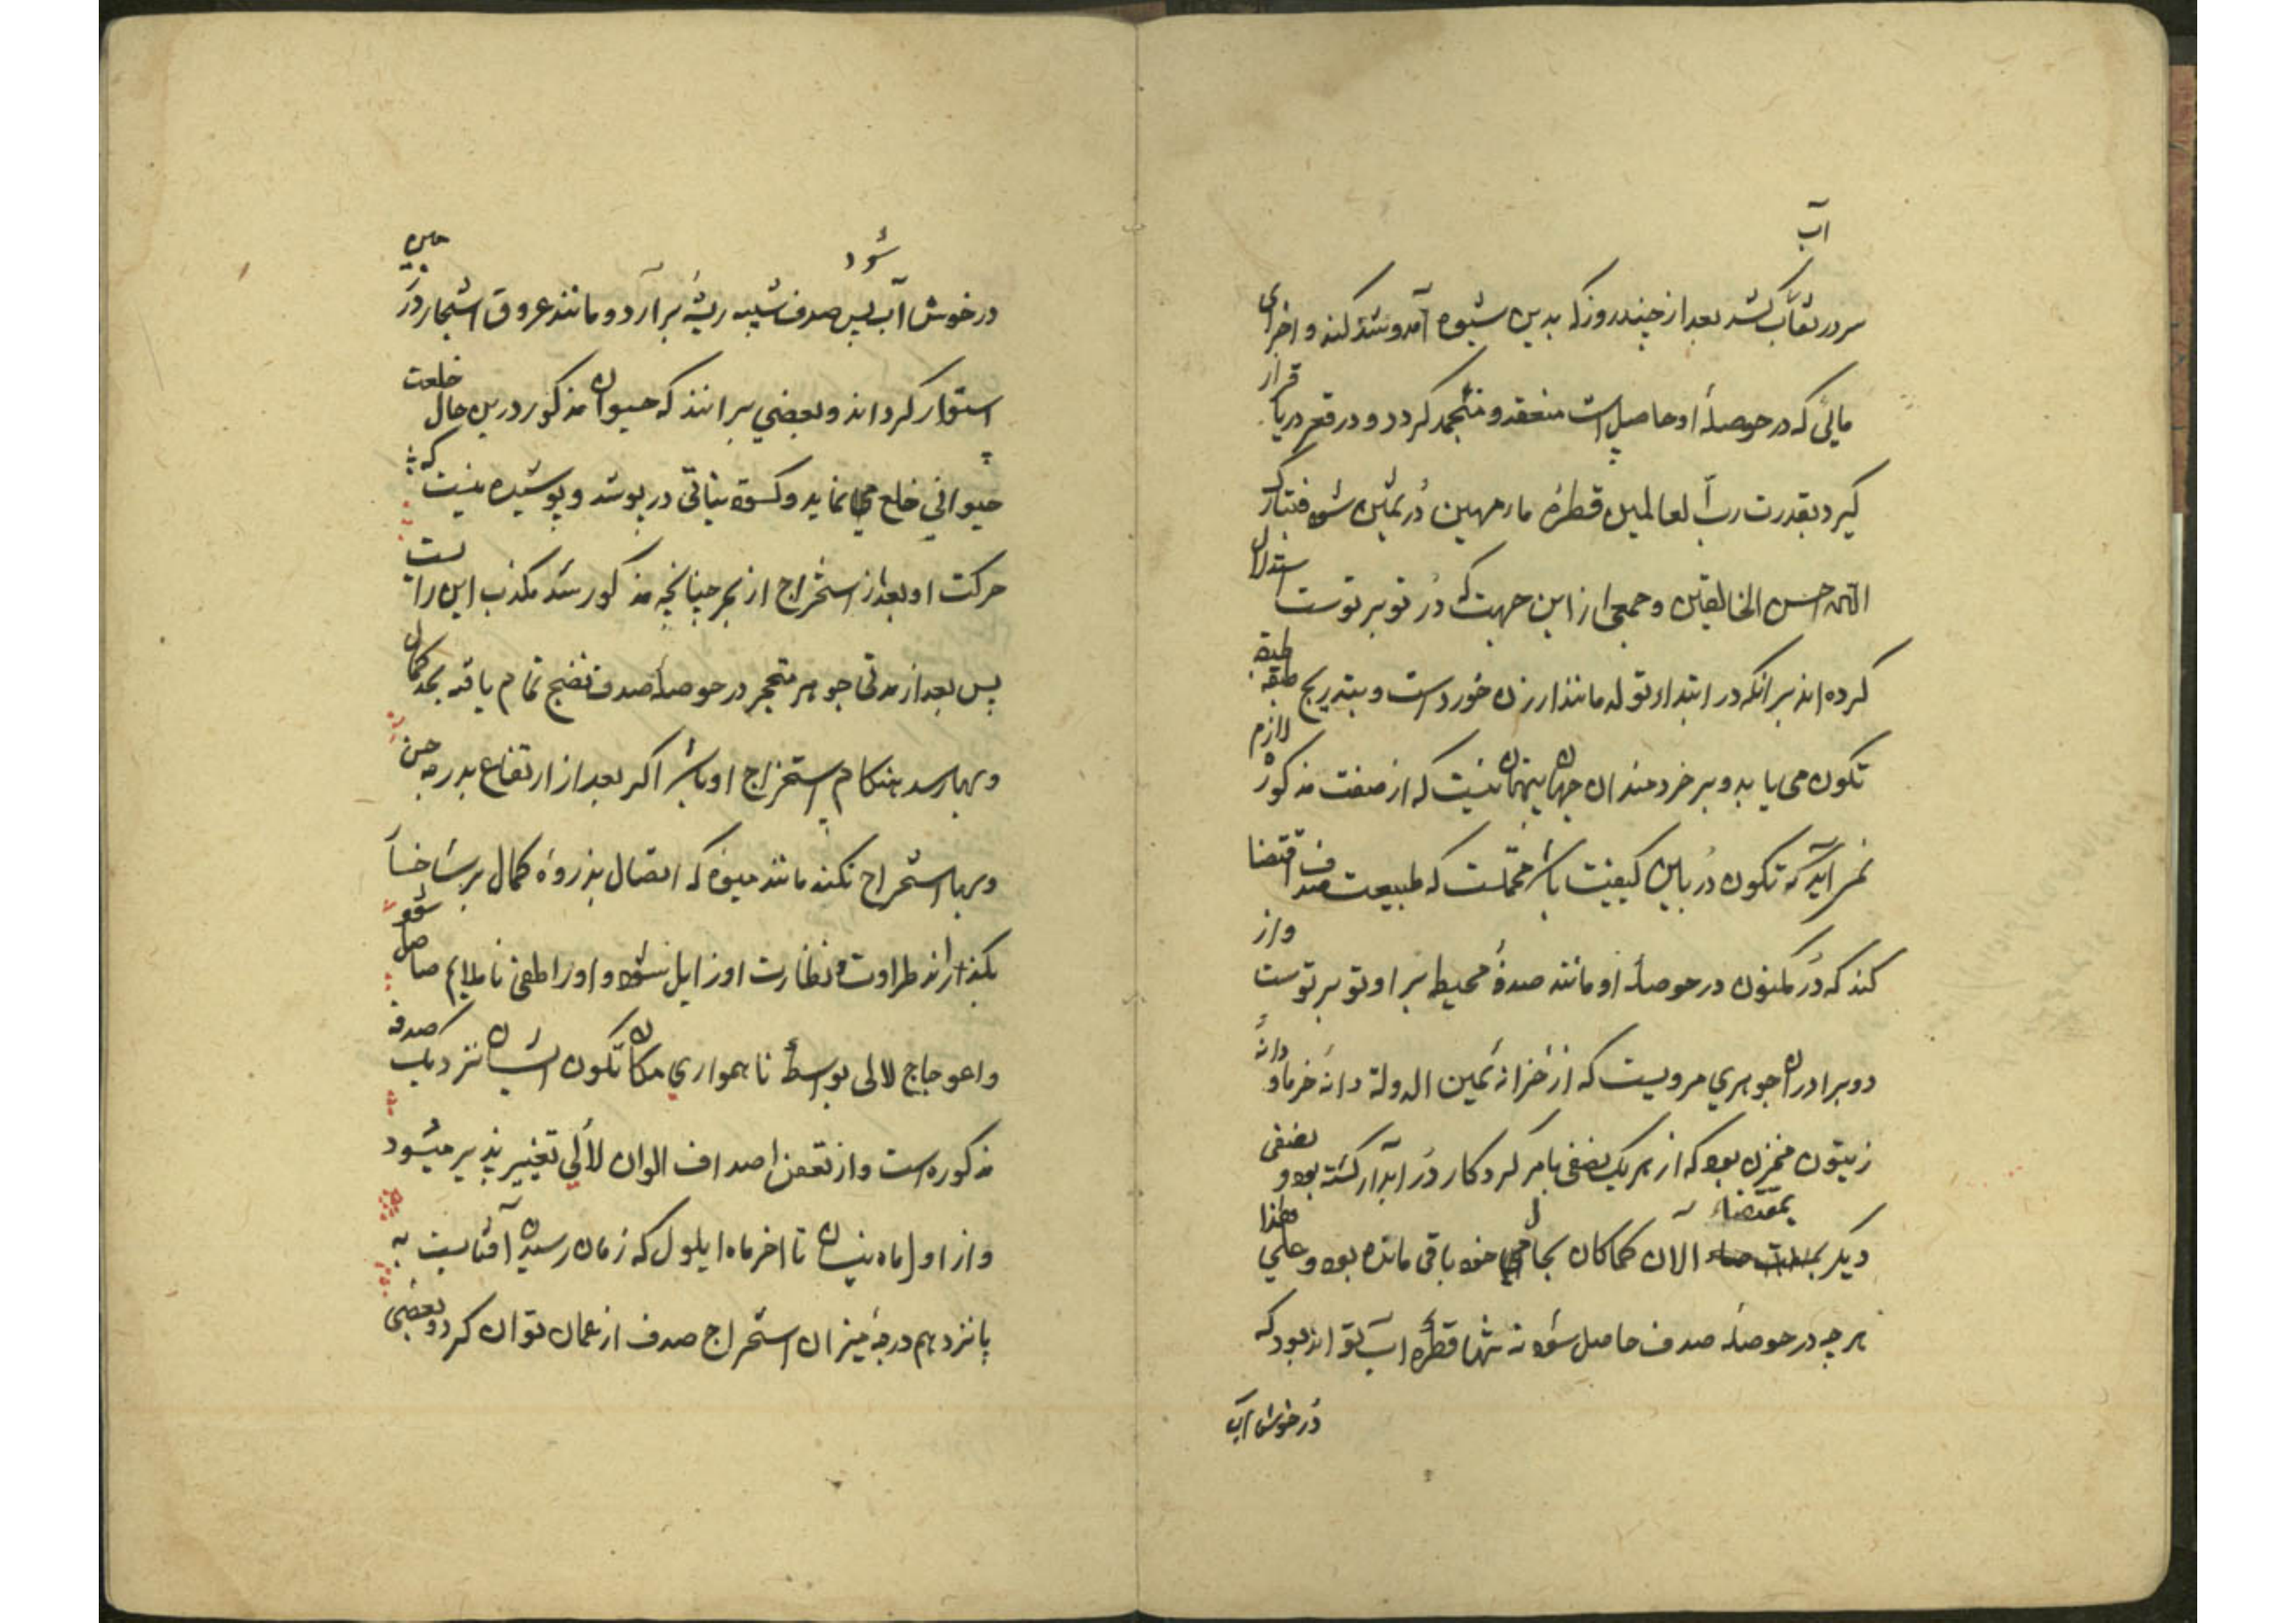 آب
سر در نقاب کشد بعد از چند روز که بدین شیوه آمد و شد کند و اجزای
مائی که در حوصلهٔ او حاصل است منعقد و منجمد کردد و در قعر دریا قرار
کیرد بقدرت رب العالمین قطرهٔ ماء مهین دُر ثمین شود فتبارک
الله احسن الخالقین و جمعی از این جهت که دُر تو بر توست استدلال
کرده اند بر انکه در ابتداء تولد مانند ارزن خوردست و بتدریج طبقه طبقه
تکون می یابد و بر خردمندان جهان پنهان نیست که از صفت مذکور لازم
نمی آید که تکون دُر باین کیفیت باشد محتملست که طبیعت صدف اقتضا
کند که دُر مکنون در حوصلهٔ او مانند صدفهٔ محیط بر او تو بر توست و از
دو برادران جوهری مرویست که از خزانهٔ یمین الدولة دانه خرما و دانهٔ
زیتون مخزن بود که از هر یک نصفی بامر کردکار دُر آبدار کشته بود و نصفی
دیکر بمقتضاء الآن کماکان بحال خود باقی مانده بود و علی هذا
هر چه در حوصلهٔ صدف حاصل شود نه تنها قطرهٔ آب تواند بود که
دُر خوش آب
شود
در خوش آب پس صدف شبیه ریشهٔ بر آرد و مانند عروق اشجار در زمین
استوار کرداند و بعضی بر انند که حیوان مذکور درین حال خلعت
حیوانی خلع می نماید و کسوة نباتی در پوشد و پوشیده نیست که
حرکت او بعد از استخراج از بحر چنانچه مذکور شد مکذب این راست
پس بعد از مدتی جوهر متحجر در حوصلهٔ صدف نضج تمام یافته بحد کمال
و بها رسد هنکام استخراج او باشد اکر بعد از ارتفاع بدرجه حسن
و بها استخراج نکنند مانند میوه که اتصال بذروهٔ کمال بر شاخسار
بکذارند طراوت و نظارت او زایل شود و او را طعمی ناملایم حاصل شود
و اعوجاج لالی بواسطهٔ ناهمواری مکان تکون ایشان نزدیک صدف
مذکوره است و از تعفن اصداف الوان لآلی تغییر پذیر میشود
و از اول ماه نیسان تا اخر ماه ایلول که زمان رسیدن آفتابست به
پانزدهم درجهٔ میزان استخراج صدف از عمان توان کرد و بعضی